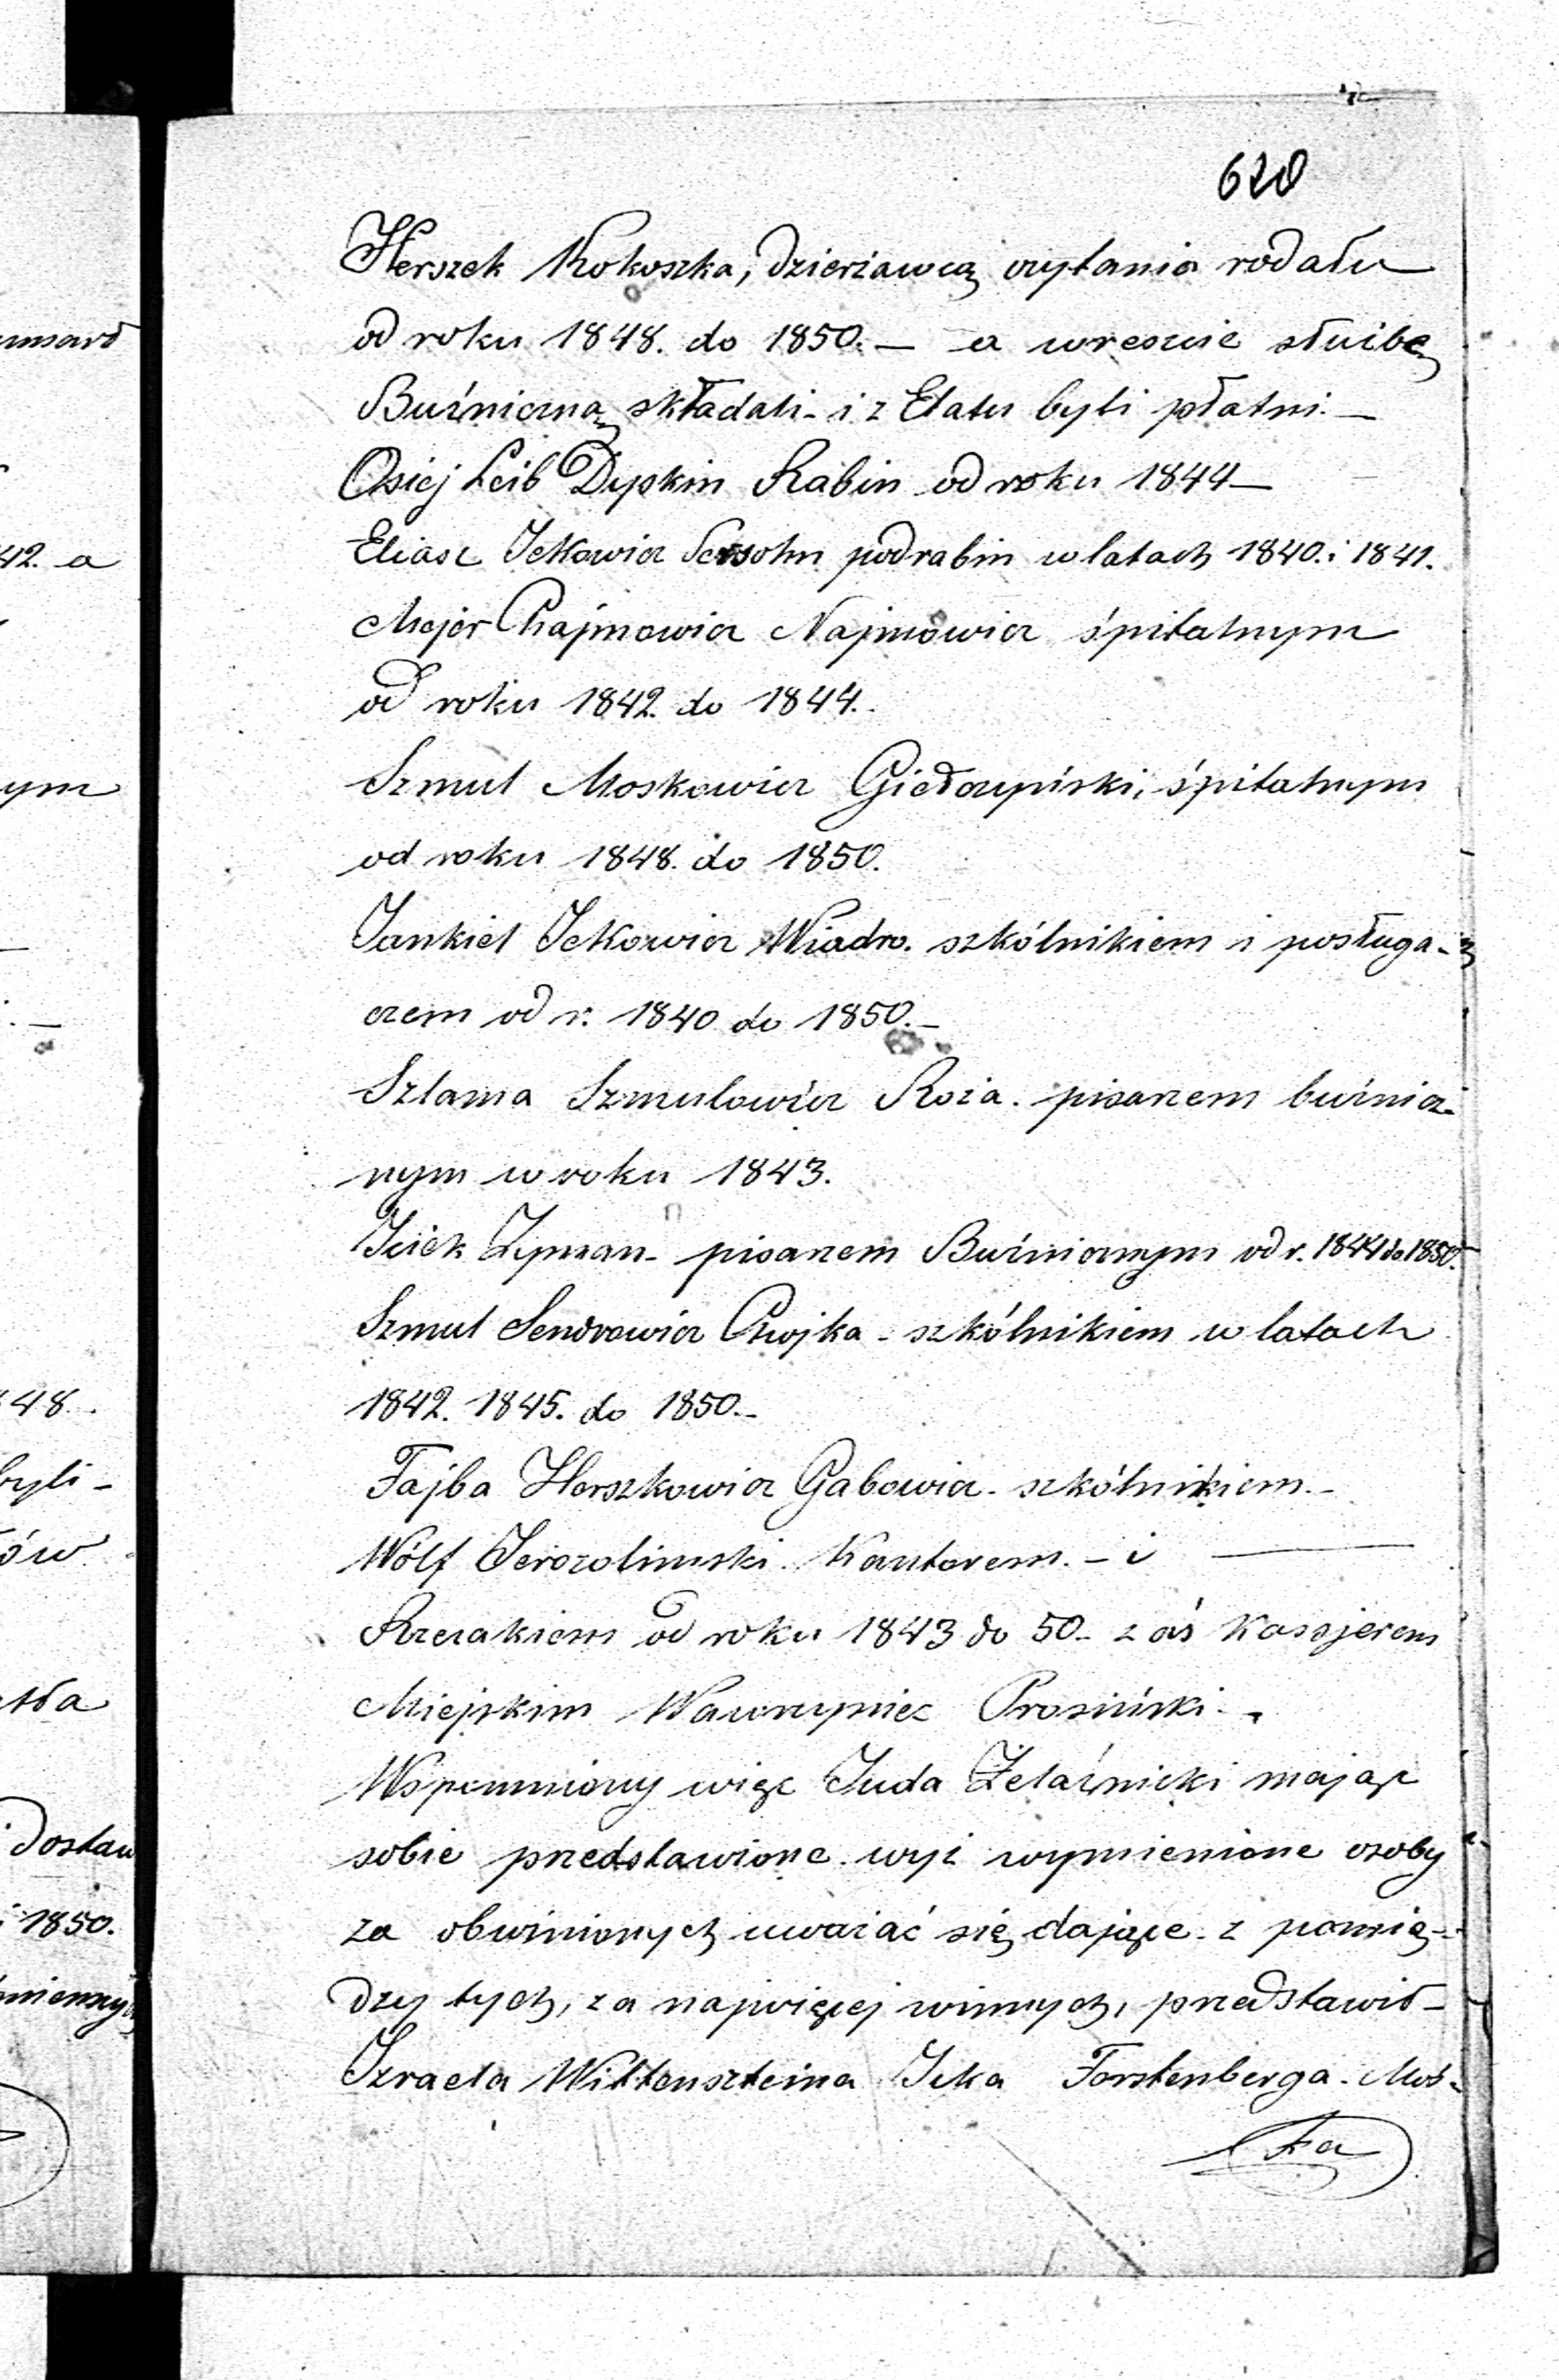 620
Herszek Kokoszka, dzierżawcą czytania rodału
od roku 1848. do 1850. — a wreszcie służbę
Bużniczną składali - i z Etatu byli płatni. —
Osiej Leib Dypkin Rabin od roku 1844 —
Eliasz Ickowicz Sersohn podrabin w latach 1840. i 1841.
Mejer Chajmowicz Najmowicz śpitalnym
od roku 1842. do 1844.
Szmul Moskowicz Giełczyński, śpitalnym
od roku 1848. do 1850.
Jankiel Ickowicz Wiadro. szkólnikiem i posługa-
czem od r. 1840 do 1850. —
Szlama Szmulowicz Roża. pisarzem bużnicz-
nym w roku 1843.
Icick Zyman - pisarzem Bużnicznym od r. 1844 do 1850.
Szmul Sendrowicz Chojka - szkólnikiem w latach
1842. 1845. do 1850. -
Fajba Herszkowicz Gabowicz - szkólnikiem. -
Wólf Jerozolimski. Kantorem. - i
Rzezakiem od roku 1843 do 50. - zaś Kassjerem
Miejskim Wawrzyniec Prosiński. -
Wspomniony więc Juda Żelaźnicki mając
sobie przedstawione wyż wymienione osoby
za obwinionych uważać się dające - z pomię-
dzy tych, za najwięcej winnych, przedstawił -
Izraela Wittenszteina Icka Forstenberga - Mos-